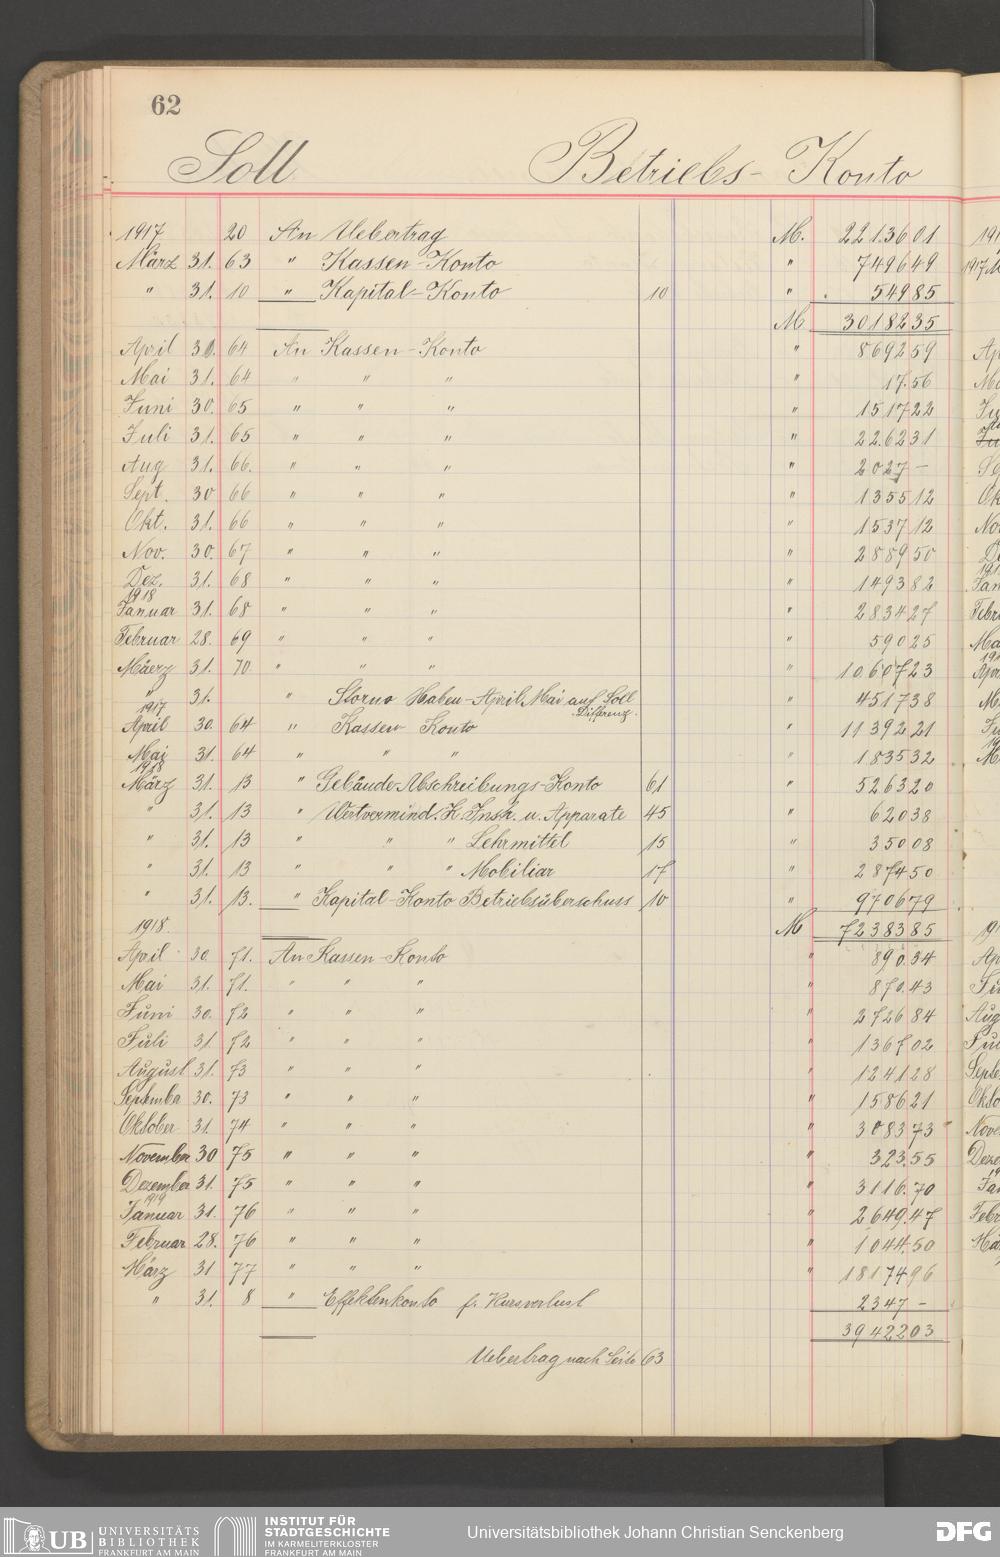 62
Soll Betriebs-Konto
1917 20 An Uebertrag M. 22136 01
März 31. 63 " Kassen-Konto " 7496 49
" 31. 10 " Kapital-Konto 10 " 549 85
M 30182 35
April 30. 64 An Kassen-Konto " 8692 59
Mai 31. 64 " " " " 17.56
Juni 30. 65 " " " " 1517 22
Juli 31. 65 " " " " 2262 31
Aug 31. 66. " " " " 2027 –
Sept. 30 66 " " " " 1355 12
Okt. 31. 66 " " " " 1537 12
Nov. 30. 67 " " " " 2889 50
Dez. 31. 68 " " " " 1493 82
1918
Januar 31. 68 " " " " 2834 27
Februar 28. 69 " " " " 590 25
Måerz 31. 70 " " " " 10607 23
" 31. " Storno Haben-April, Mai auf Soll " 4517 38
Differenz.
1917
April 30. 64 " Kassen Konto " 11392 21
Mai 31. 64 " " " " 1835 32
1918
März 31. 13 " Gebäude-Abschreibungs-Konto 61 " 5263 20
" 31. 13 " Wertvermind. K. Insk. u. Apparate 45 " 620 38
" 31. 13 " " " Lehrmittel 15 " 350 08
" 31. 13 " " " Mobiliar 17 " 2874 50
" 31. 13. " Kapital-Konto Betriebsüberschuss 10 " 9706 79
1918. M 72383 85
April 30. 71. An Kassen-Konto " 890.34
Mai 31. 71. " " " " 870.43
Juni 30. 72 " " " " 2726 84
Juli 31 72 " " " " 1367 02
August 31. 73 " " " " 1241 28
Septemba 30. 73 " " " " 1586 21
Oktober 31. 74 " " " " 3083 73
November 30 75 " " " " 323.55
Dezember 31. 75 " " " " 3116.70
1919
Januar 31. 76 " " " " 2649.47
Februar 28. 76 " " " " 1044.50
März 31 77 " " " " 18174 96
" 31. 8 " Effektenkonto f. Kursverlust 2347 –
39422 03
Uebertrag nach Seite 63
UB UNIVERSITÄTS
BIBLIOTHEK
FRANKFURT AM MAIN
INSTITUT FÜR
STADTGESCHICHTE
IM KARMELITERKLOSTER
FRANKFURT AM MAIN
Universitätsbibliothek Johann Christian Senckenberg
DFG